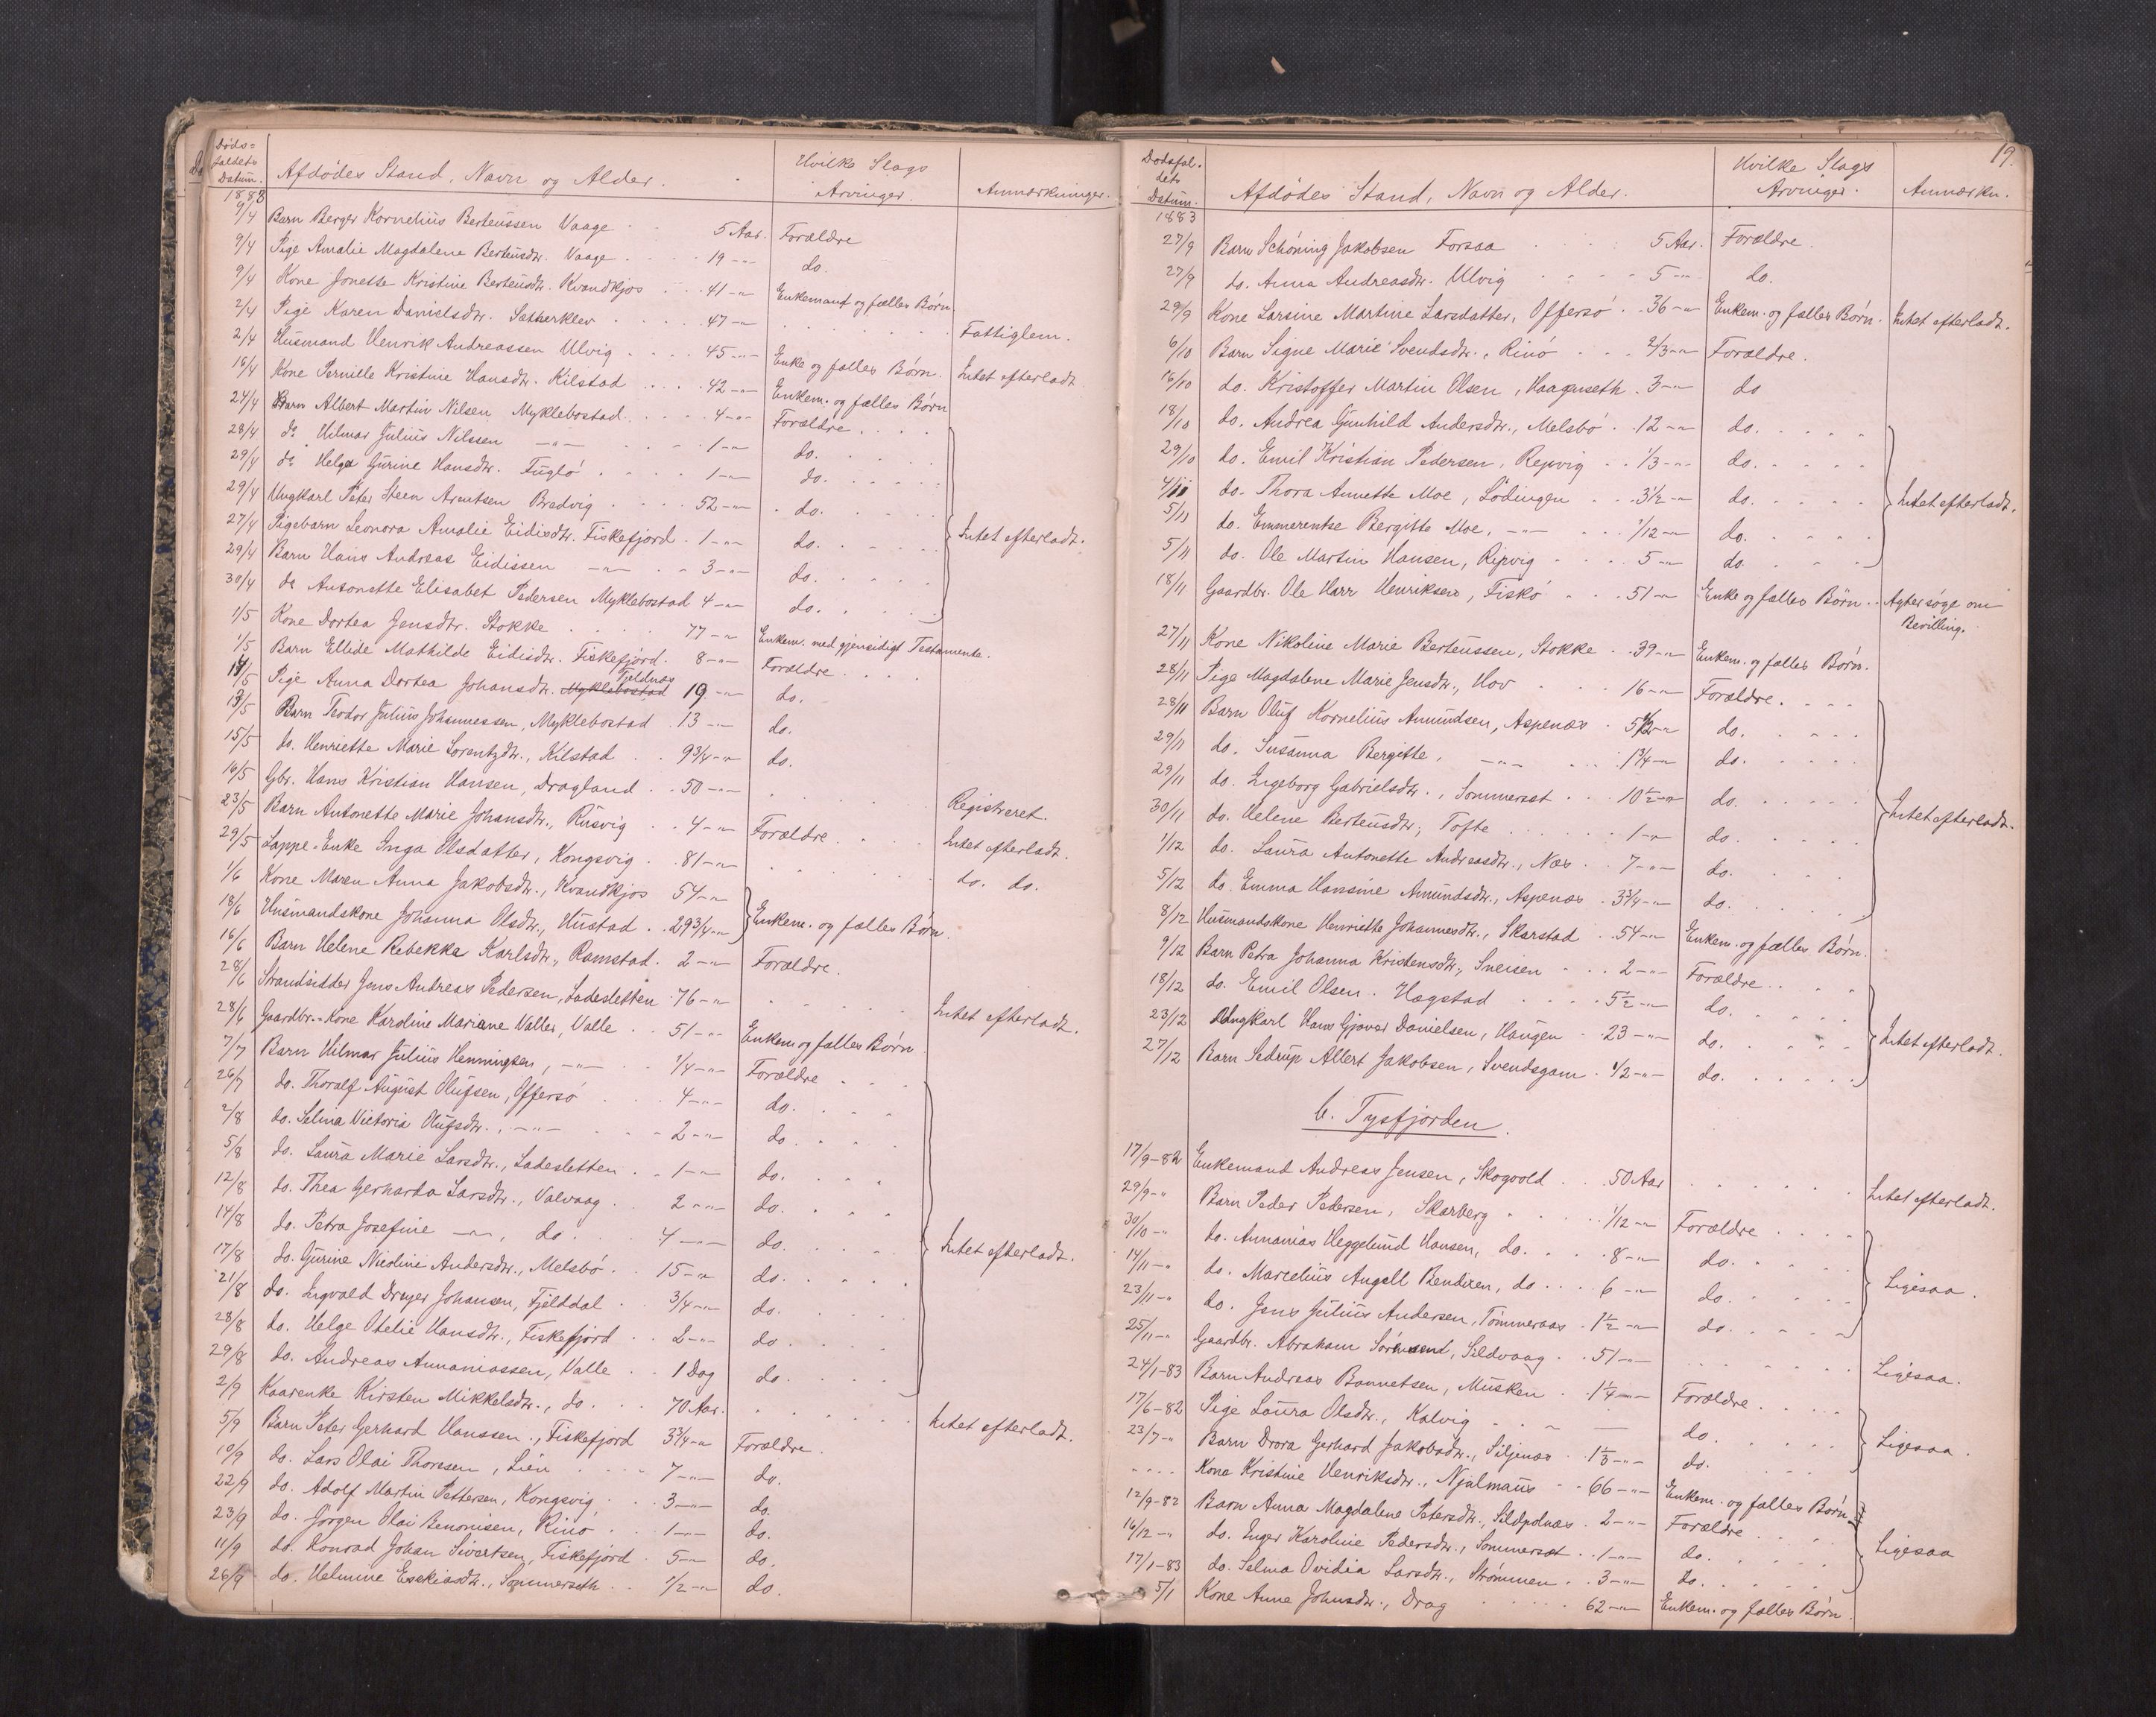 Døds=
faldets
Datum.
Afdødes Stand, Navn og Alder.
Hvilke Slags
Arvinger.
Anmærkninger.
1883
9/4 Barn Berger Kornelius Berteussen Vaage 5 Aar. Forældre
9/4 Pige Amalie Magdalene Berteusdtr. Vaage 19 -"- do.
9/4 Kone Jonette Kristine Berteusdtr. Kvandkjos 41 -"- Enkemand og fælles Børn.
2/4 Pige Karen Danielsdtr. Sætherklev 47 -"- Fattiglem.
2/4 Husmand Henrik Andreassen Ulvig 45 -"- Enke og fælles Børn. Intet efterladt.
16/4 Kone Pernille Kristine Hansdtr. Kilstad 42 -"- Enkem. og fælles Børn
24/4 Barn Albert Martin Nilsen Myklebostad 4 -"- Forældre
28/4 do Hilmar Julius Nilssen -"- 1 -"- do.
29/4 do Helga Gurine Hansdtr. Fuglø 1 -"- do.
29/4 Ungkarl Peter Steen Arentsen Bredvig 52 -"- do.
27/4 Pigebarn Leonora Amalie Eidisdtr. Fiskefjord 1 -"- do. Intet efterladt.
29/4 Barn Hans Andreas Eidissen -"- 3 -"- do.
30/4 do Antonette Elisabet Pedersen Myklebostad 4 -"- do.
1/5 Kone Dortea Jensdtr. Stokke 77 -"- Enkem. med gjensidigt Testamente.
1/5 Barn Ellide Mathilde Eidisdtr. Fiskefjord 8 -"- Forældre
Fjeldnæs
11/5 Pige Anna Dortea Johansdtr. Myklebostad 19 -"- do.
13/5 Barn Teodor Julius Johannessen, Myklebostad 13 -"- do.
15/5 do. Henriette Marie Lorentzdtr., Kilstad 9 3/4 -"- do.
16/5 Gbr. Hans Kristian Hansen, Dragland 50 -"- Registreret.
23/5 Barn Antonette Marie Johansdtr., Rusvig 4 -"- Forældre Intet efterladt.
29/5 Lappe-Enke Inga Olsdatter, Kongsvig 81 -"- do. do.
1/6 Kone Maren Anna Jakobsdtr., Kvandkjos 54 -"-
18/6 Husmandskone Johanna Olsdtr., Hustad 29 3/4 -"- Enkem. og fælles Børn.
16/6 Barn Helene Rebekka Karlsdtr., Ramstad 2 -"- Forældre.
28/6 Strandsidder Jens Andreas Pedersen, Ladesletten 76 -"- Intet efterladt.
28/6 Gaardbr.-Kone Karoline Mariane Valle, Valle 51 -"- Enkem og fælles Børn
7/7 Barn Hilmar Julius Henningsen, -"- 1/4 -"- Forældre
26/7 do. Thoralf August Olufsen, Offersø 4 -"- do.
2/8 do. Selma Victoria Olufsdtr., -"- 2 -"- do.
5/8 do. Laura Marie Larsdtr., Ladesletten 1 -"- do.
12/8 do. Thea Gerharda Larsdtr., Valvaag 2 -"- do.
14/8 do. Petra Josefine -"-, do. 4 -"- do. Intet efterladt.
17/8 do. Gurine Nicoline Andersdtr., Melsbø 15 -"- do.
21/8 do. Ingvald Dreyer Johansen, Fjelddal 3/4 -"- do.
28/8 do. Helge Otelie Hansdtr., Fiskefjord 2 -"- do.
29/8 do. Andreas Annaniassen, Valle 1 Dag do.
2/9 Kaarenke Kirsten Mikkelsdtr., do. 70 Aar. Intet efterladt.
5/9 Barn Peter Gerhard Hanssen, Fiskefjord 3 3/4 -"- Forældre.
10/9 do. Lars Olai Thoresen, Lien 7 -"- do.
22/9 do. Adolf Martin Pettersen, Kongsvig 3 -"- do.
23/9 do. Jørgen Olai Benonisen, Rinø 1 -"- do.
11/9 do. Konrad Johan Sivertsen, Fiskefjord 5 -"- do.
26/9 do. Helmine Esekiasdtr., Sommerseth 1/2 -"- do.
19.
Dødsfal-
dets
Datum.
Afdødes Stand, Navn og Alder.
Hvilke Slags
Arvinger.
Anmærkn.
1883
27/9 Barn Schøning Jakobsen Forsaa 5 Aar. Forældre.
27/9 do. Anna Andreasdtr. Ulvig 5 -"- do.
29/9 Kone Larsine Martine Larsdatter, Offersø 36 -"- Enkem. og fælles Børn. Intet efterladt.
6/10 Barn Signe Marie Svendsdtr., Rinø 2/3 -"- Forældre.
16/10 do. Kristoffer Martin Olsen, Haagenseth 3 -"- do
18/10 do. Andrea Gunhild Andersdtr., Melsbø 12 -"- do.
29/10 do. Emil Kristian Pedersen, Repvig 1/3 -"- do.
4/11 do. Thora Annette Moe, Lødingen 3 1/2 -"- do. Intet efterladt.
5/11 do. Emmerentse Bergitte Moe, -"- 1/12 -"- do.
5/11 do. Ole Martin Hansen, Ripvig 5 -"- do.
18/11 Gaardbr. Ole Harr Henriksen, Fiskø 51 -"- Enke og fælles Børn. Agter søge om
Bevilling.
27/11 Kone Nikoline Marie Berteussen, Stokke 39 -"- Enkem. og fælles Børn.
28/11 Pige Magdalene Marie Jensdtr., Hov 16 -"- Forældre.
28/11 Barn Oluf Kornelius Amundsen, Aspenæs 5 1/2 -"- do.
29/11 do. Susanna Bergitte, -"- 1 3/4 -"- do.
29/11 do. Ingeborg Gabrielsdtr., Sommerset 10 1/2 -"- do. Intet efterladt.
30/11 do. Helene Berteusdtr., Tofte 1 -"- do.
1/12 do. Laura Antonette Andreasdtr., Næs 7 -"- do.
5/12 do. Emma Hansine Amundsdtr., Aspenæs 3 3/4 -"- do.
8/12 Husmandskone Henriette Johannesdtr., Skarstad 54 -"- Enkem. og fælles Børn.
9/12 Barn Petra Johanna Kristensdtr., Sneisen 2 -"- Forældre
18/12 do. Emil Olsen. Hagstad 5 1/2 -"- do.
23/12 Ungkarl Hans Gjøver Danielsen, Haugen 23 -"- do. Intet efterladt.
27/12 Barn Sedrup Albert Jakobsen, Svendsgam 1/2 -"- do.
b. Tysfjorden.
17/9-82 Enkemand Andreas Jensen, Skogvold 50 Aar Intet efterladt.
29/9-" Barn Peder Pedersen, Skarberg 1/12 -"- Forældre
30/10-" do. Annanias Heggelund Hansen, do. 8 -"- do.
14/11-" do. Marcelius Angell Bendixen, do 6 -"- do. Ligesaa.
23/11-" do. Jens Julius Andersen, Tømmeraas 1 1/2 -"- do.
25/11-" Gaardbr. Abraham Sørensen, Sildvaag 51 -"- Ligesaa.
24/1-83 Barn Andreas Bannetsen, Musken 1 1/4 -"- Forældre
17/6-82 Pige Laura Olsdtr., Kalvig — do. Ligesaa.
23/7-" Barn Drora Gerhard Jakobsdtr., Siljenæs 1 1/3 -"- do.
Kone Kristine Henriksdtr., Njalmaus 66 -"- Enkem. og fælles Børn
12/9-82 Barn Anna Magdalene Petersdtr., Sildpolnæs 2 -"- Forældre
16/12-" do. Inger Karoline Pedersdtr., Sommerset 1 -"- do. Ligesaa
17/1-83 do. Selma Ovidia Larsdtr., Strømmen 3 -"- do.
5/1 Kone Anne Johnsdtr., Drag 62 -"- Enkem. og fælles Børn.